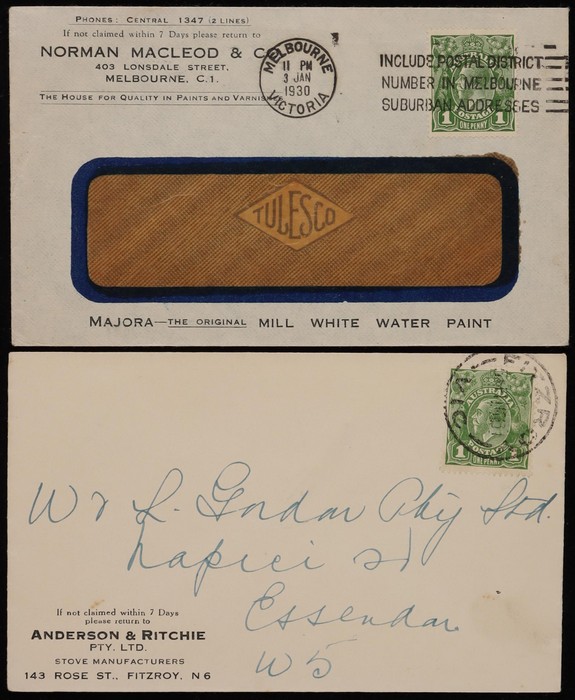 PHONES: CENTRAL 1347 (2 LINES)
If not claimed within 7 Days please return to
NORMAN MACLEOD & C
403 LONSDALE STREET,
MELBOURNE, C.1.
THE HOUSE FOR QUALITY IN PAINTS AND VARNIS
MELBOURNE
11 PM
3 JAN
1930
VICTORIA
INCLUDE POSTAL DISTRICT
NUMBER IN MELBOURNE
SUBURBAN ADDRESSES
POSTAGE
1 1
ONE PENNY
TULESCO
MAJORA—THE ORIGINAL MILL WHITE WATER PAINT
FITZR
VIC
AUSTRALIA
POSTAGE
1
ONE PENNY
W & L. Gordon Pty Ltd.
Napier St
Essendon
W5
If not claimed within 7 Days
please return to
ANDERSON & RITCHIE
PTY. LTD.
STOVE MANUFACTURERS
143 ROSE ST., FITZROY, N 6